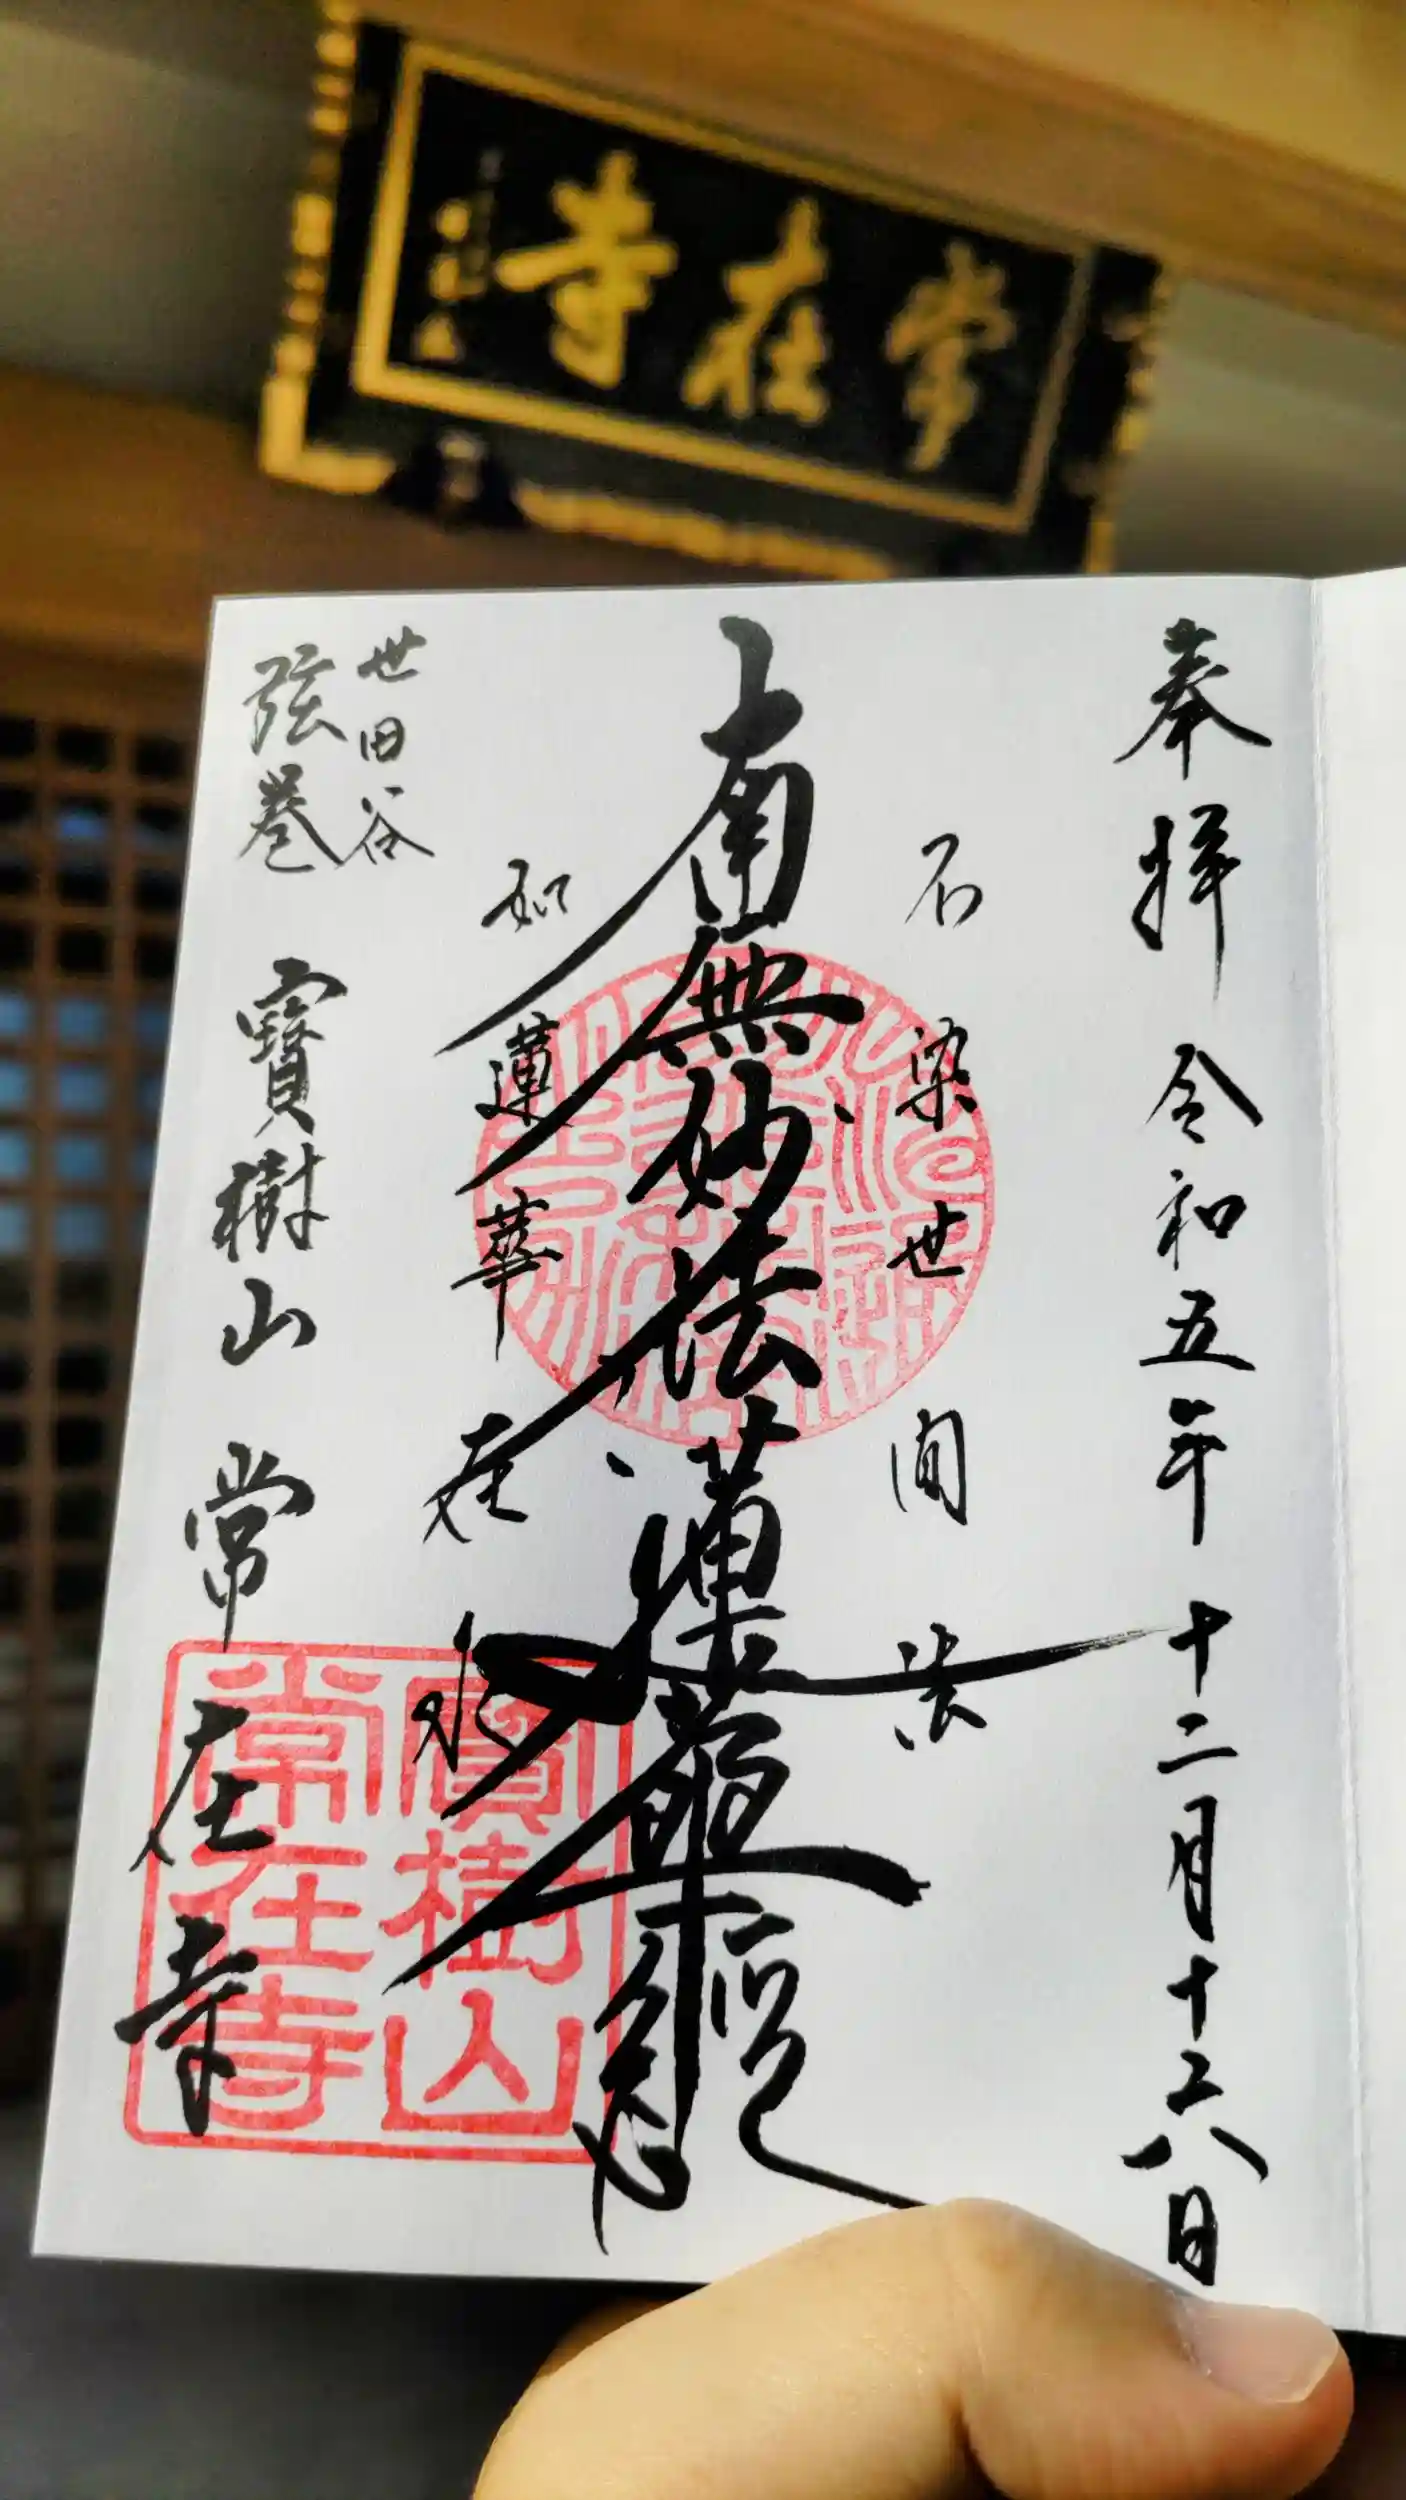 常在寺
奉拝 令和五年十二月十六日
不染世間法
南無妙法蓮華経
如蓮華在水
世田谷
弦巻
寶樹山 常在寺
寶樹山
常在寺